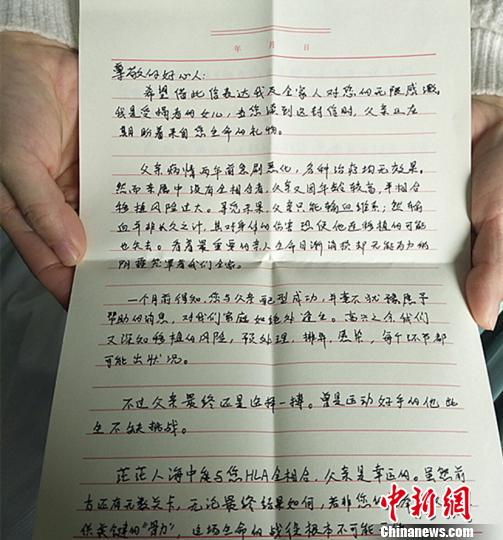 年 月 日
尊敬的好心人:
希望借此信表达我及全家人对您的无限感激。
我是受捐者的女儿,当您读到这封信时,父亲正在
期盼着来自您生命的礼物。
父亲病情两年前急剧恶化,各种治疗均无效果。
然而亲属中没有全相合者,父亲又因年龄较高,半相合
移植风险过大。寻觅未果,父亲只能输血维系;然输
血并非长久之计,其对身体的伤害恐使他在移植的可能
也失去。看着最重要的亲人生命日渐消损却无能为力的
阴霾笼罩着我们全家。
一个月前得知,您与父亲配型成功,并毫不犹豫应予
帮助的消息,对我们家庭如绝处逢生。高兴之余我们
又深知移植的风险,预处理、排异、感染,每个环节都
可能出状况。
不过父亲最终还是选择一搏。曾是运动好手的他此
生不缺挑战。
茫茫人海中能与您HLA全相合,父亲是幸运的。虽然前
方还有无数关卡,无论最终结果如何,若非您的
供关键的"骨力",这场生命的战役根本不可能
中新网
www.chinanews.com